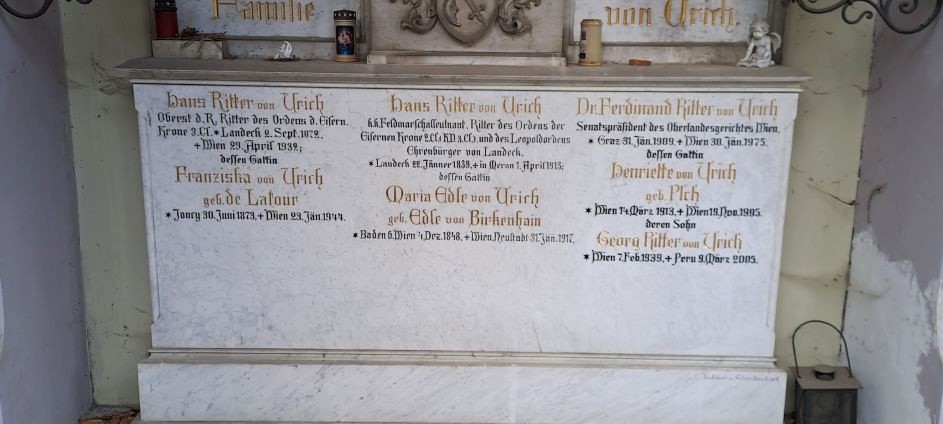 Familie
von Urich.
Hans Ritter von Urich
Oberst d. R. Ritter des Ordens d. Eisern.
Krone 3.Cl. * Landeck 2. Sept. 1872,
+ Wien 29. April 1932;
dessen Gattin
Franziska von Urich
geb. de Latour
* Joncy 30. Juni 1873, + Wien 23. Jän. 1944.
Hans Ritter von Urich
k.k. Feldmarschalleutnant, Ritter des Ordens der
Eisernen Krone 2.Cl. (KD. 3.Cl.) und des Leopoldordens
Ehrenbürger von Landeck.
* Landeck 22. Jänner 1839, + in Meran 1. April 1915;
dessen Gattin
Maria Edle von Urich
geb. Edle von Birkenhain
* Baden b. Wien 4. Dez. 1848, + Wien. Neustadt 31. Jän. 1917.
Dr. Ferdinand Ritter von Urich
Senatspräsident des Oberlandesgerichtes Wien.
* Graz 31. Jän. 1909. + Wien 30. Jän. 1975.
dessen Gattin
Henriette von Urich
geb. Plch
* Wien 14. März 1913. + Wien 19. Nov. 1995.
deren Sohn
Georg Ritter von Urich
* Wien 7. Feb. 1939. + Peru 9. März 2005.